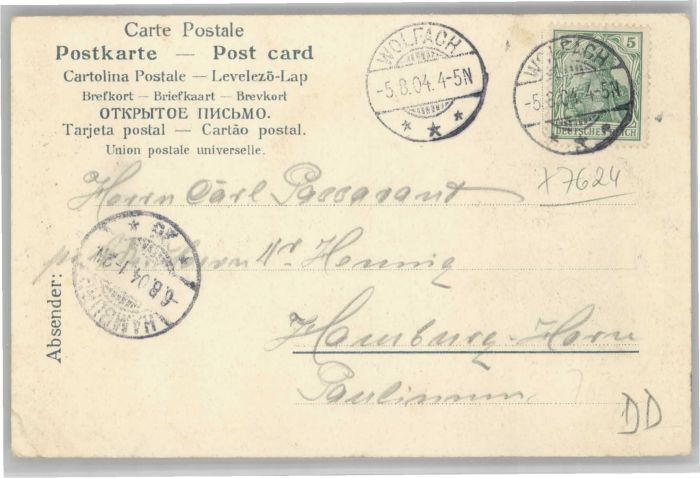 Carte Postale
Postkarte — Post card
Cartolina Postale — Levelező-Lap
Brefkort — Briefkaart — Brevkort
ОТКРЫТОЕ ПИСЬМО.
Tarjeta postal — Cartão postal.
Union postale universelle.
WOLFACH
-5.8.04.4-5N
WOLFACH
-5.8.04.4-5N
5
DEUTSCHES REICH
x7624
Herrn Carl Passavant
Hennig
Hamburg-Horn
Paulinum
HAMBURG
-6.8.04.1-2N
Absender:
DD